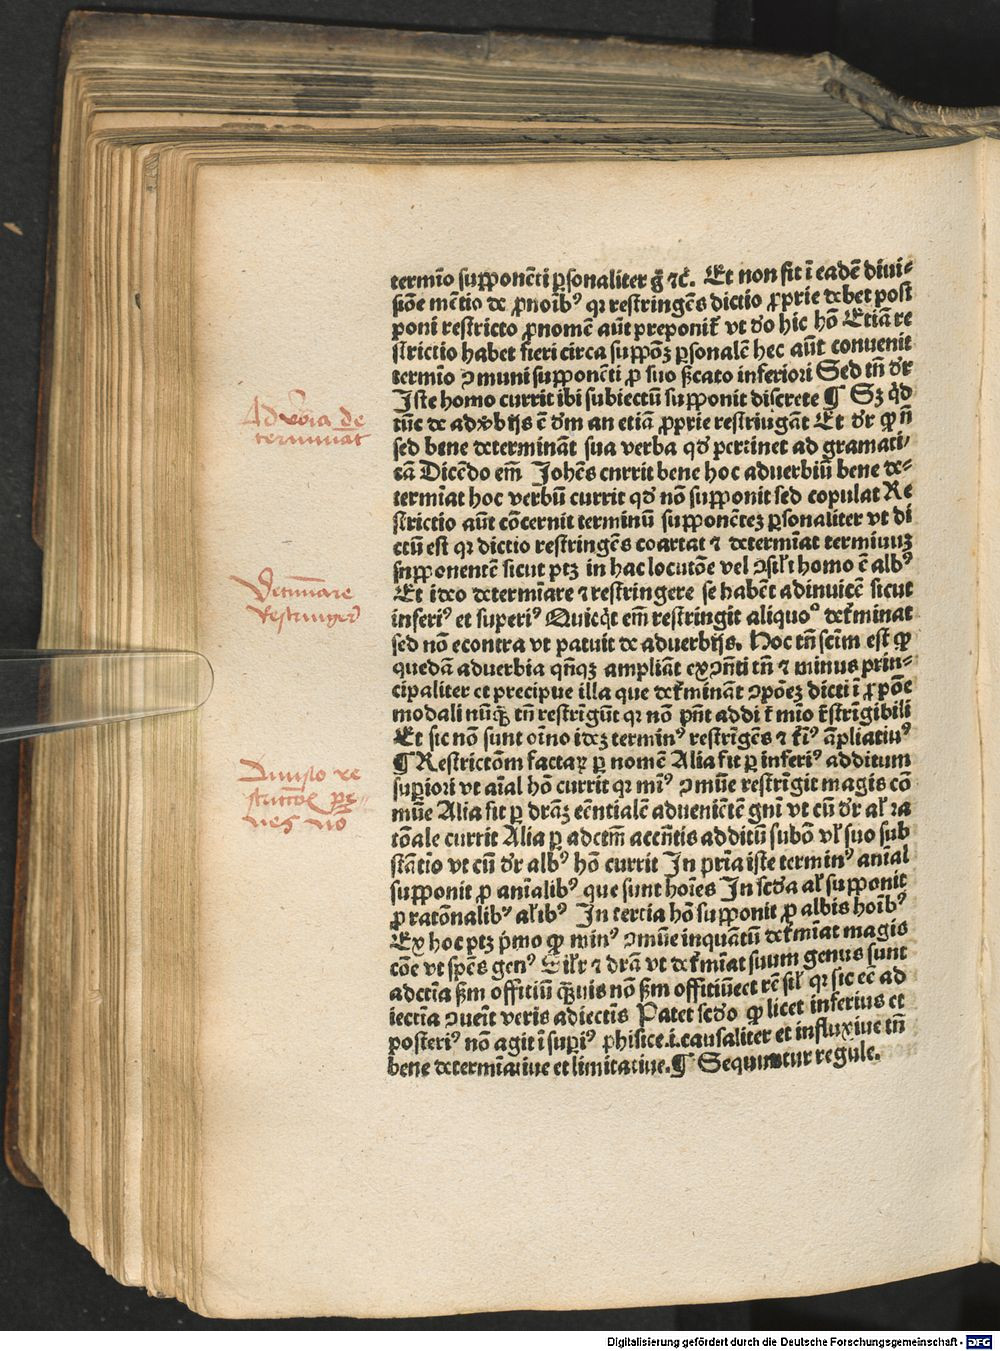 termīo supponēti ꝑsonaliter g̊ ⁊c̄. Et non fit ī eadē diui⸗
siōe mētio de ꝓnoīb⁹ qꝛ restringēs dictio ꝓprie debet post
poni restricto ꝓnomē aūt preponit᷑ vt dō hic hō Etiā re
strictio habet fieri circa suppōꝫ ꝑsonalē hec aūt conuenit
termīo ↄmuni supponēti ꝓ suo ſ̄cato inferiori Sed tn̄ dr̄
Iste homo currit ibi subiectū supponit discrete ¶ Sꝫ qd̄
tūc de adv̄bijs ē dm̄ an etiā ꝓprie restringāt Et dr̄ ꝙ n̄
sed bene determināt sua verba qd̄ pertinet ad gramati⸗
cā Dicēdo em̄ Johēs cnrrit bene hoc aduerbiū bene de⸗
termīat hoc verbū currit qd̄ nō supponit sed copulat Re
strictio aūt cōcernit terminū supponēteꝫ ꝑsonaliter vt di
ctū est qꝛ dictio restringēs coartat ⁊ determīat termiuuꝫ
snpponentē sicut ptꝫ in hac locutōe vel ↄsil'i homo ē alb⁹
Et ideo determīare ⁊ restringere se habēt adinuicē sicut
inferi⁹ et superi⁹ Quicqd̄ em̄ restringit aliquoº det᷑minat
sed nō econtra vt patuit de aduerbijs. Hoc tn̄ scīm est ꝙ
quedā aduerbia qn̄qꝫ ampliāt exↄn̄ti tn̄ ⁊ minus prin⸗
cipaliter et precipue illa que det᷑mināt ↄpōeꝫ dicti ī ꝓpōe
modali nūq̄ꝫ tn̄ restrīgūt qꝛ nō pn̄t addi t᷑mīo r̄strīgibili
Et sic nō sunt oīno ideꝫ termin⁹ restrīgēs ⁊ t᷑i⁹ āpliatiu⁹
¶ Restrictōm factaꝝ ꝑ nomē Alia fit ꝑ inferi⁹ additum
suꝑiori vt aīal hō currit qꝛ mī⁹ ↄmūe restrīgit magis cō
mūe Alia fit ꝑ drāꝫ eēntialē aduenīētē gn̄i vt cū dr̄ al̄ ra
tōale currit Alia ꝑ adctm̄ accn̄tis additū subō vl̄ suo sub
stātio vt cū dr̄ alb⁹ hō currit In prīa iste termin⁹ anīal
supponit ꝓ anīalib⁹ que sunt hoīes In scd̄a al̄ supponit
ꝓ ratōnalib⁹ al̄ib⁹ In tercia hō supponit ꝓ albis hoīb⁹
Ex hoc ptꝫ p̄mo ꝙ min⁹ ↄmūe inquātū det᷑mīat magis
cōe vt spēs gen⁹ Sil'r ⁊ drā vt det᷑mīat suum genus sunt
adctīa ſm̄ offitiū q̄ꝫuis nō ſm̄ offitiū et rē sil' qꝛ sic eē ad
iectīa ↄueīt veris adiectis Patet scd̄o ꝙ licet inferius et
posteri⁹ nō agit ī suꝑi⁹ phisice .i. causaliter et influxiue tn̄
bene determīatiue et limitatiue. ¶ Sequuntur regule.
Adv̄bia de
terminat
Det᷑minare
Restringer̄
Diuisio re
strictōꝝ pe⸗
nes nō
Digitalisierung gefördert durch die Deutsche Forschungsgemeinschaft - DFG